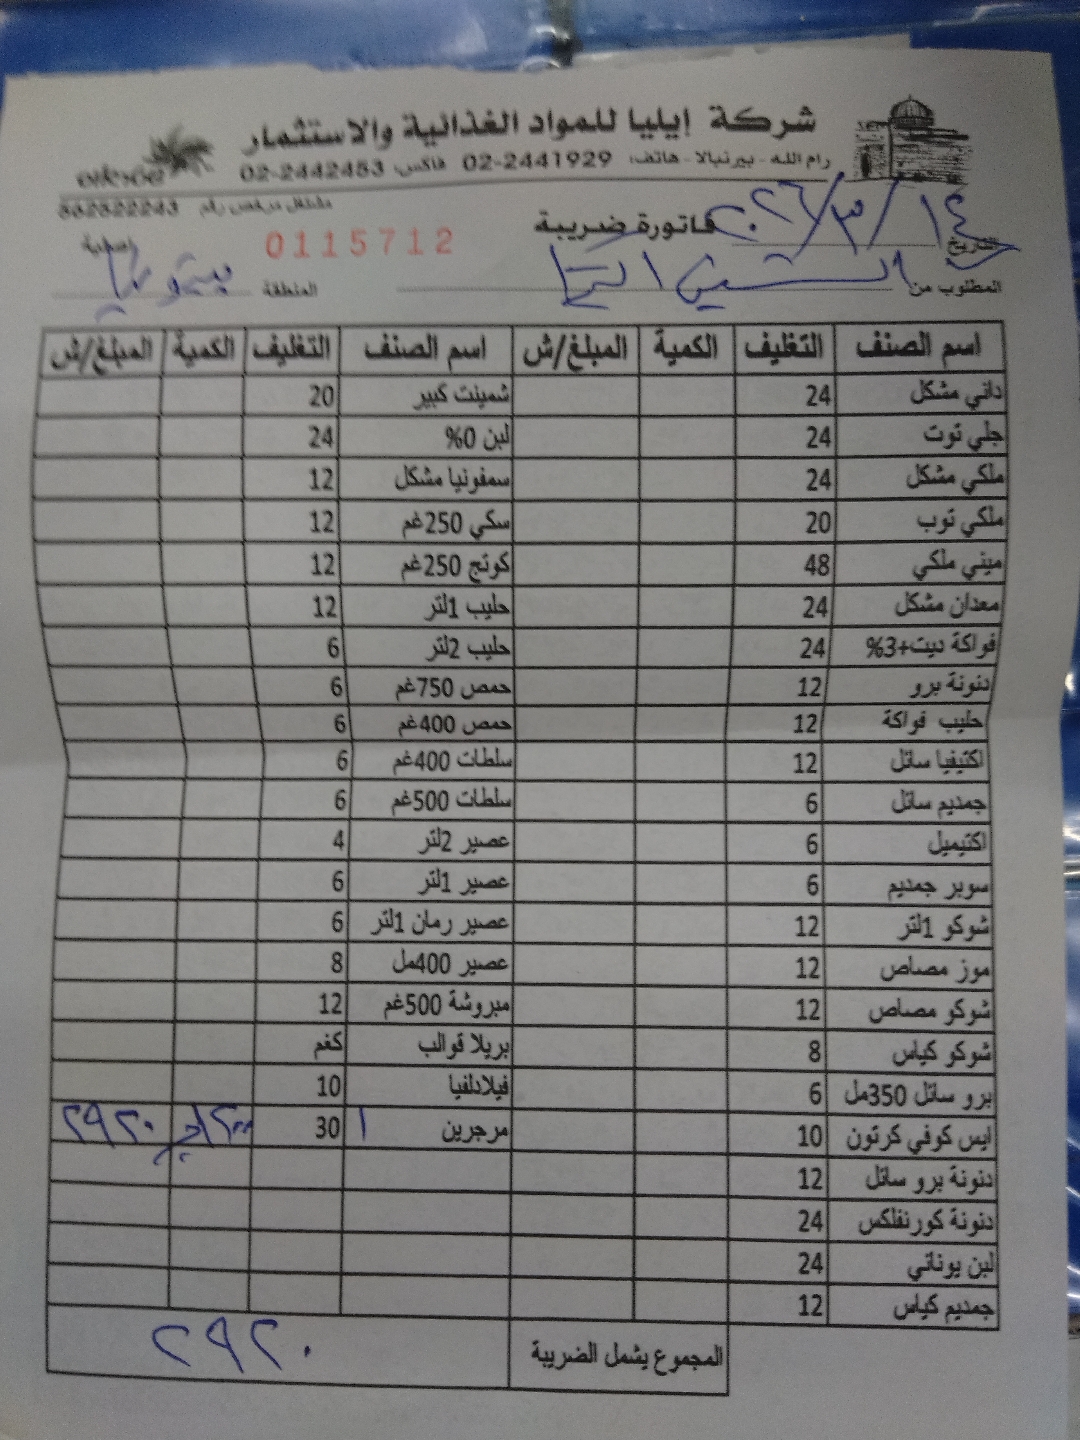 شركة إيليا للمواد الغذائية والاستثمار
رام الله - بيرنبالا - هاتف: 02-2441929 فاكس 02-2442453
مشتغل مرخص رقم 562522243
فاتورة ضريبة
0115712
التاريخ ١٤/٣/٢٠٢٦
المطلوب من
المنطقة بيتونيا
اسم الصنف التغليف الكمية المبلغ/ش اسم الصنف التغليف الكمية المبلغ/ش
داني مشكل 24 شمينت كبير 20
جلي توت 24 لبن 0% 24
ملكي مشكل 24 سمفونيا مشكل 12
ملكي توب 20 سكي 250غم 12
ميني ملكي 48 كوتج 250غم 12
معدان مشكل 24 حليب 1لتر 12
فواكة ديت+3% 24 حليب 2لتر 6
دنونة برو 12 حمص 750غم 6
حليب فواكة 12 حمص 400غم 6
اكتيفيا سائل 12 سلطات 400غم 6
جمديم سائل 6 سلطات 500غم 6
اكتيميل 6 عصير 2لتر 4
سوبر جمديم 6 عصير 1لتر 6
شوكو 1لتر 12 عصير رمان 1لتر 6
موز مصاص 12 عصير 400مل 8
شوكو مصاص 12 مبروشة 500غم 12
شوكو كياس 8 بريلا قوالب كغم
برو سائل 350مل 6 فيلادلفيا 10
ايس كوفي كرتون 10 مرجرين ١ 30 ٢٩٢٠
دنونة برو سائل 12
دنونة كورنفلكس 24
لبن يوناني 24
جمديم كياس 12
المجموع يشمل الضريبة ٢٩٢٠